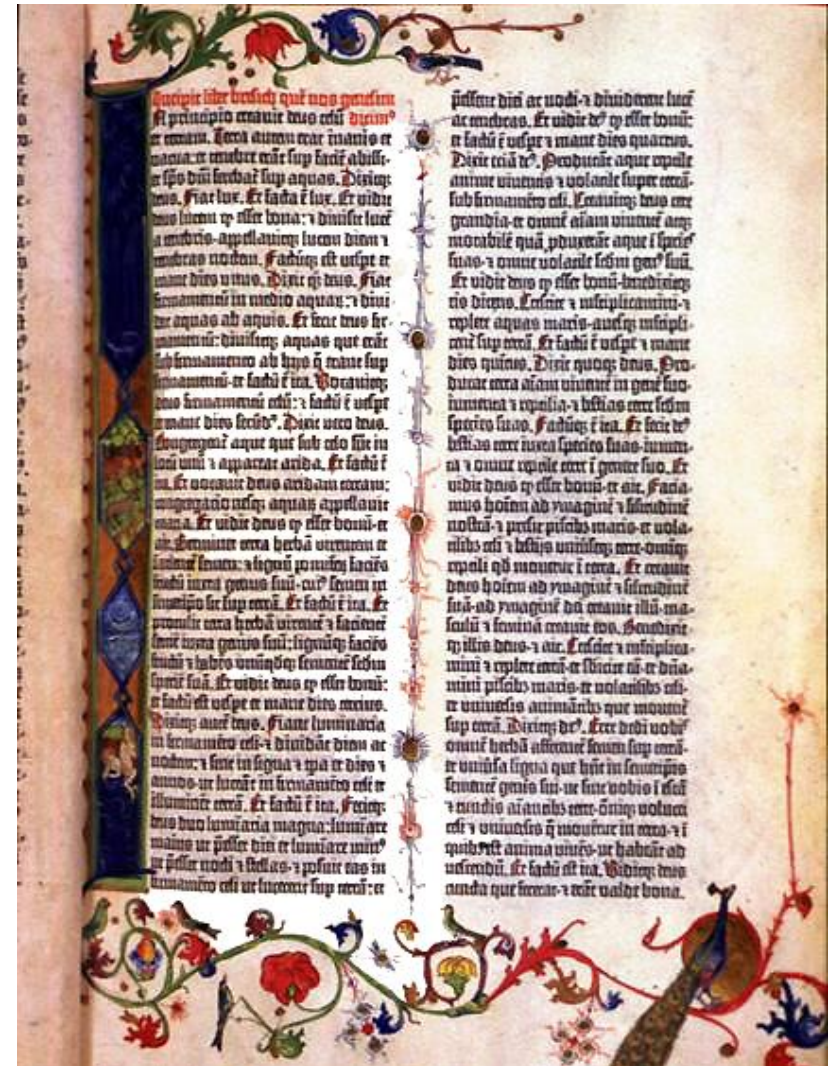 Incipit liber bresich quē nos genesim
In principio creauit deus celū dicimꝰ
et terram. Terra autem erat inanis et
vacua: et tenebre erāt sup faciē abissi:
et spūs dñi ferebat sup aquas. Dixitqꝫ
deus. Fiat lux. Et facta ē lux. Et vidit
deus lucem ꝙ esset bona: ⁊ diuisit lucē
a tenebris-appellauitqꝫ lucem diem ⁊
tenebras noctem. Factūqꝫ est vespe et
mane dies vnus. Dixit qꝫ deus. Fiat
firmamentū in medio aquaꝝ: ⁊ diui-
dat aquas ab aquis. Et fecit deus fir-
mamentū: diuisitqꝫ aquas que erāt
sub firmamento ab hijs q̄ erant sup
firmamentū-et factū ē ita. Vocauitqꝫ
deus firmamentū celū: ⁊ factū ē vespe
et mane dies secūdꝰ. Dixit vero deus.
Congregent aque que sub celo sūt in
locū vnū ⁊ appareat arida. Et factū ē
ita. Et vocauit deus aridam terram:
congregacionesqꝫ aquaꝝ appellauit
maria. Et vidit deus ꝙ esset bonū-et
ait. Germinet terra herbā virentem et
facientē semen: ⁊ lignū pomiferū faciēs
fructū iuxta genus suū-cuiꝰ semen in
semetipo sit sup terrā. Et factū ē ita. Et
protulit terra herbā virentē ⁊ facientē
semē iuxta genus suū: lignūqꝫ faciēs
fructū ⁊ habēs vnūqdqꝫ sementē scdm
speciē suā. Et vidit deus ꝙ esset bonū:
et factū est vespe et mane dies tercius.
Dixitqꝫ autē deus. Fiant luminaria
in firmamēto celi-⁊ diuidāt diem ac
noctem: ⁊ sint in signa ⁊ tpa et dies ⁊
annos-ut luceāt in firmamēto celi et
illuminēt terrā. Et factū ē ita. Fecitqꝫ
deus duo luminaria magna: luminare
maius ut pesset diei et luminare minꝰ
ut pesset nocti ⁊ stellas-⁊ posuit eas in
firmamēto celi ut lucerent sup terrā: et
pessent diei ac nocti-⁊ diuiderent lucē
ac tenebras. Et vidit deꝰ ꝙ esset bonū:
et factū ē vespe ⁊ mane dies quartus.
Dixit eciā deꝰ. Producāt aque reptile
anime viuentis ⁊ volatile super terrā-
sub firmamēto celi. Creauitqꝫ deus cete
grandia-et omnē aīam viuentē atqꝫ
motabilē quā pduxerāt aque ī species
suas-⁊ omne volatile scdm genꝰ suū.
Et vidit deus ꝙ esset bonū-benedixitqꝫ
eis dicens. Crescite ⁊ multiplicamini-⁊
replete aquas maris-auesqꝫ multipli-
cent sup terrā. Et factū ē vespe ⁊ mane
dies quintus. Dixit quoqꝫ deus. Pro-
ducat terra aīam viuentē in genē suo-
iumenta ⁊ reptilia-⁊ bestias terre scdm
species suas. Factūqꝫ ē ita. Et fecit deꝰ
bestias terre iuxta species suas-iumen-
ta ⁊ omne reptile terre ī genere suo. Et
vidit deus ꝙ esset bonū-et ait. Facia-
mus hoīem ad ymaginē ⁊ silitudinē
nostrā-⁊ presit piscibꝫ maris-et vola-
tilibꝫ celi ⁊ bestijs vniūseqꝫ terre-omniqꝫ
reptili qd mouetur ī terra. Et creauit
deus hoīem ad ymaginē ⁊ silitudinē
suā-ad ymaginē dei creauit illū-ma-
sculū ⁊ feminā creauit eos. Benedixit-
qꝫ illis deus-⁊ ait. Crescite ⁊ multiplica-
mini ⁊ replete terrā-et subicite eā-et dnā-
mini piscibꝫ maris-et volatilibꝫ celi-
et vniuersis animātibꝫ que mouent
sup terrā. Dixitqꝫ deꝰ. Ecce dedi vobis
omnē herbā afferentē semen sup terrā-
et vniūsa ligna que hñt in semetipis
sementē genis sui-ut sint vobis ī escā
⁊ cunctis aīantibꝫ terre-omniqꝫ volucri
celi ⁊ vniuersis q̄ mouentur in terra-⁊ ī
quibꝫ est anima viuēs-ut habeāt ad
vescendū. Et factū est ita. Viditqꝫ deus
cuncta que fecerat-⁊ erāt valde bona.